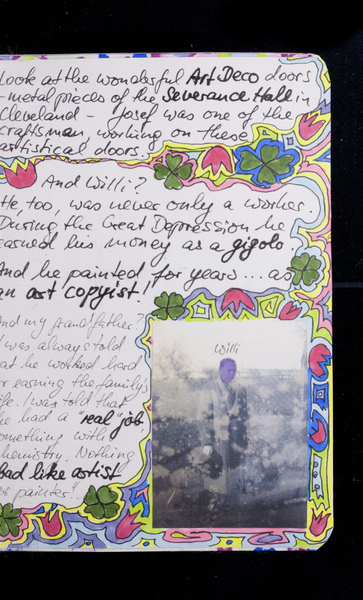 Look at the wonderful Art Deco doors
- metal pieces of the Severance Hall in
Cleveland - Josef was one of the
craftsman working on these
artistical doors.
And Willi?
He, too, was never only a worker.
During the Great Depression he
earned his money as a gigolo.
And he painted for years... as
an art copyist!
And my grandfather?
I was always told
at he worked hard
or earning the family's
life. I was told that
he had a "real" job
omething with
chemistry. Nothing
bad like artist
or painter".
Willi